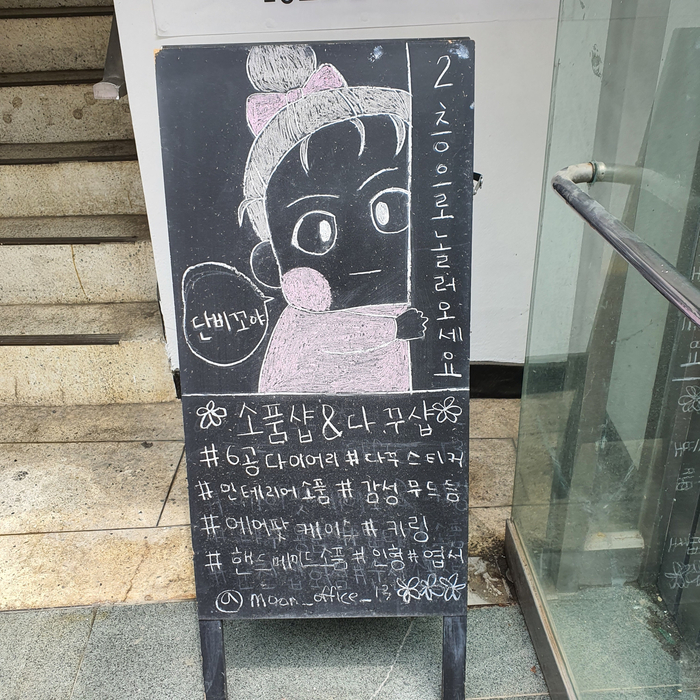 2층으로 놀러오세요
단비꼬야
소품샵 & 다꾸샵
#6공다이어리 #다꾸스티커
#인테리어소품 #감성무드등
#에어팟 케이스 #키링
#핸드메이드소품 #인형 #엽서
@moon_office_13